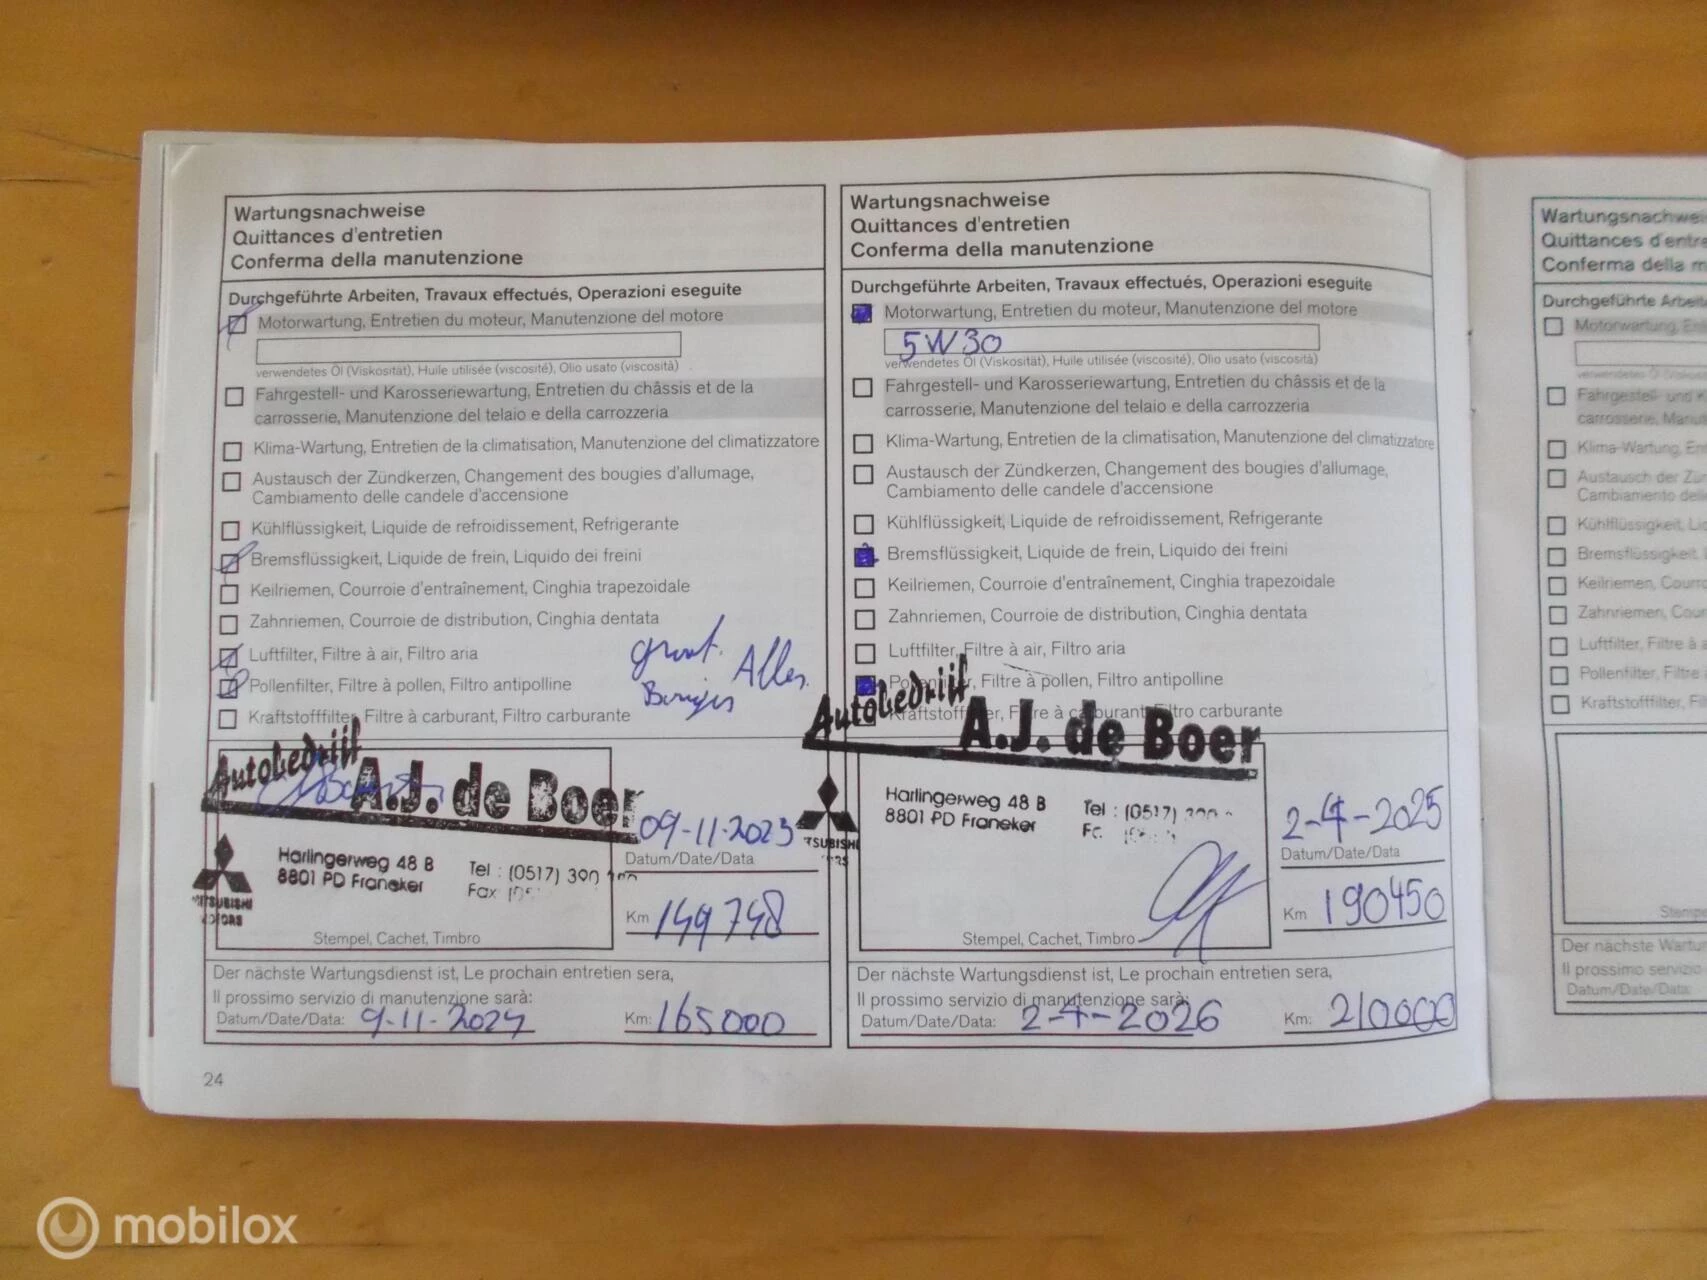 Wartungsnachweise
Quittances d'entretien
Conferma della manutenzione
Durchgeführte Arbeiten, Travaux effectués, Operazioni eseguite
Motorwartung, Entretien du moteur, Manutenzione del motore
verwendetes Öl (Viskosität), Huile utilisée (viscosité), Olio usato (viscosità)
Fahrgestell- und Karosseriewartung, Entretien du châssis et de la
carrosserie, Manutenzione del telaio e della carrozzeria
Klima-Wartung, Entretien de la climatisation, Manutenzione del climatizzatore
Austausch der Zündkerzen, Changement des bougies d'allumage,
Cambiamento delle candele d'accensione
Kühlflüssigkeit, Liquide de refroidissement, Refrigerante
Bremsflüssigkeit, Liquide de frein, Liquido dei freini
Keilriemen, Courroie d'entraînement, Cinghia trapezoidale
Zahnriemen, Courroie de distribution, Cinghia dentata
Luftfilter, Filtre à air, Filtro aria
Pollenfilter, Filtre à pollen, Filtro antipolline
Kraftstofffilter, Filtre à carburant, Filtro carburante
groot.
Alles.
Bougies
Autobedrijf
A.J. de Boer
Harlingerweg 48 B
8801 PD Franeker
Tel : (0517) 390
Fax
MITSUBISHI
MOTORS
09-11-2023
Datum/Date/Data
Km 149748
Stempel, Cachet, Timbro
Der nächste Wartungsdienst ist, Le prochain entretien sera,
Il prossimo servizio di manutenzione sarà:
Datum/Date/Data: 9-11-2024 Km: 165000
24
Wartungsnachweise
Quittances d'entretien
Conferma della manutenzione
Durchgeführte Arbeiten, Travaux effectués, Operazioni eseguite
Motorwartung, Entretien du moteur, Manutenzione del motore
5W30
verwendetes Öl (Viskosität), Huile utilisée (viscosité), Olio usato (viscosità)
Fahrgestell- und Karosseriewartung, Entretien du châssis et de la
carrosserie, Manutenzione del telaio e della carrozzeria
Klima-Wartung, Entretien de la climatisation, Manutenzione del climatizzatore
Austausch der Zündkerzen, Changement des bougies d'allumage,
Cambiamento delle candele d'accensione
Kühlflüssigkeit, Liquide de refroidissement, Refrigerante
Bremsflüssigkeit, Liquide de frein, Liquido dei freini
Keilriemen, Courroie d'entraînement, Cinghia trapezoidale
Zahnriemen, Courroie de distribution, Cinghia dentata
Luftfilter, Filtre à air, Filtro aria
Pollenfilter, Filtre à pollen, Filtro antipolline
Kraftstofffilter, Filtre à carburant, Filtro carburante
Autobedrijf
A.J. de Boer
Harlingerweg 48 B
8801 PD Franeker
Tel : (0517)
TSUBISHI
2-4-2025
Datum/Date/Data
Km 190450
Stempel, Cachet, Timbro
Der nächste Wartungsdienst ist, Le prochain entretien sera,
Il prossimo servizio di manutenzione sarà:
Datum/Date/Data: 2-4-2026 Km: 210000
Wartungsnachwei
Quittances d'entre
Conferma della m
Durchgeführte Arbeit
Motorwartung, En
Fahrgestell- und K
carrosserie, Manu
Klima-Wartung, En
Austausch der Zün
Cambiamento dell
Kühlflüssigkeit, Liq
Bremsflüssigkeit, L
Keilriemen, Courro
Zahnriemen, Cour
Luftfilter, Filtre à a
Pollenfilter, Filtre
Kraftstofffilter, Fil
Stempe
Der nächste Wartun
Il prossimo servizio
Datum/Date/Data:
mobilox